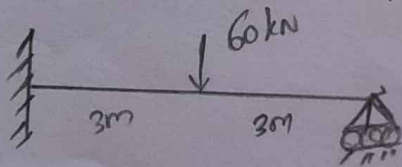 60 kN
3m 3m